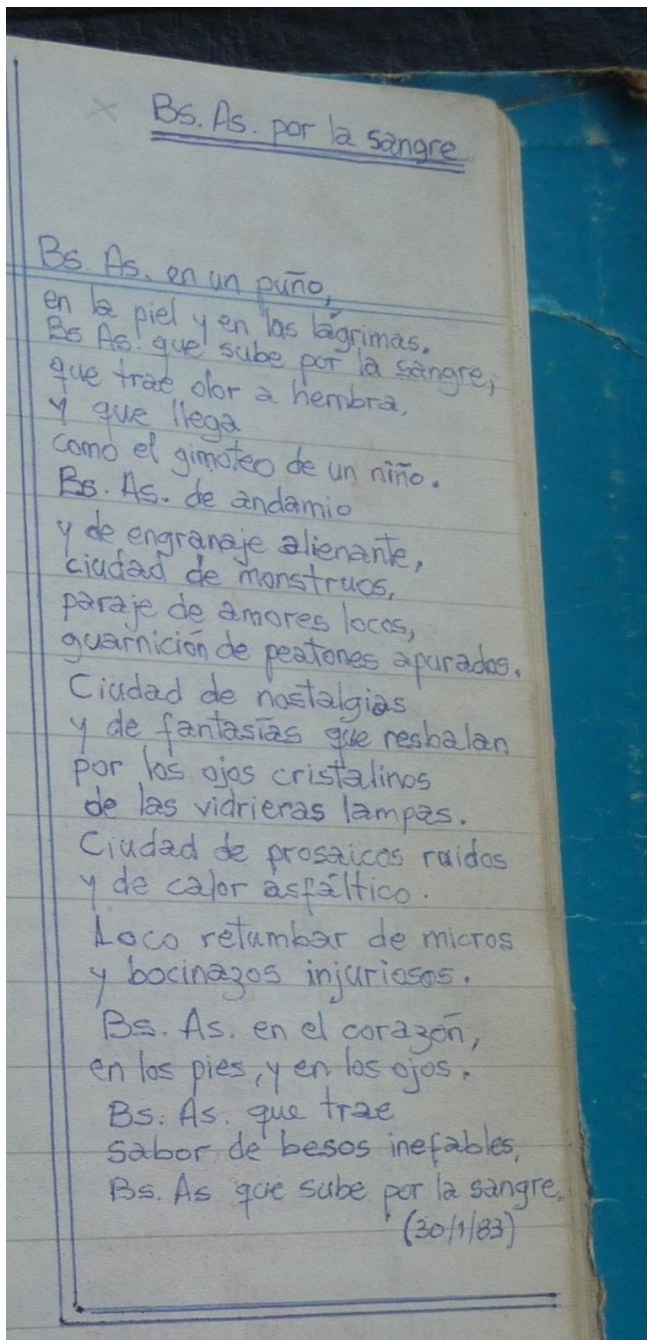 Bs. As. por la sangre
Bs. As. en un puño,
en la piel y en las lágrimas.
Bs As. que sube por la sangre,
que trae olor a hembra,
y que llega
como el gimoteo de un niño.
Bs. As. de andamio
y de engranaje alienante,
ciudad de monstruos,
paraje de amores locos,
guarnición de peatones apurados.
Ciudad de nostalgias
y de fantasías que resbalan
por los ojos cristalinos
de las vidrieras lampas.
Ciudad de prosaicos ruidos
y de calor asfáltico.
Loco retumbar de micros
y bocinazos injuriosos.
Bs. As. en el corazón,
en los pies, y en los ojos.
Bs. As. que trae
sabor de besos inefables,
Bs. As que sube por la sangre.
(30/1/83)